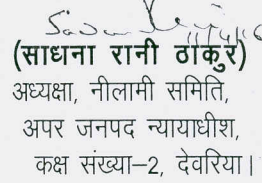 (साधना रानी ठाकुर)
अध्यक्षा, नीलामी समिति,
अपर जनपद न्यायाधीश,
कक्ष संख्या–2, देवरिया।